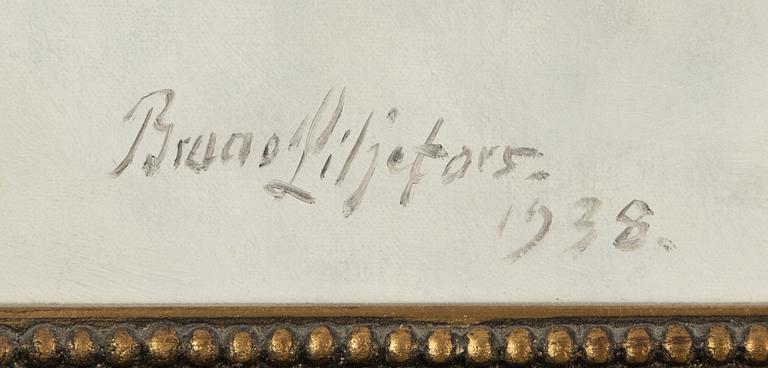 Bruno Liljefors.
1938.